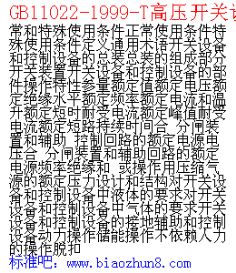 GB11022-1999-T高压开关设
常和特殊使用条件正常使用条件特
殊使用条件定义通用术语开关设备
和控制设备的总装总装的组成部分
开关装置开关设备和控制设备的部
件操作特性参量额定值额定电压额
定绝缘水平额定频率额定电流和温
升额定短时耐受电流额定峰值耐受
电流额定短路持续时间合 分闸装
置和辅助 控制回路的额定电源电
压合 分闸装置和辅助回路的额定
电源频率绝缘和 或操作用压缩气
源的额定压力设计和结构对开关设
备和控制设备中液体的要求对开关
设备和控制设备中气体的要求开关
设备和控制设备的接地辅助和控制
设备动力操作储能操作不依赖人力
的操作脱扣
标准吧：www.biaozhun8.com